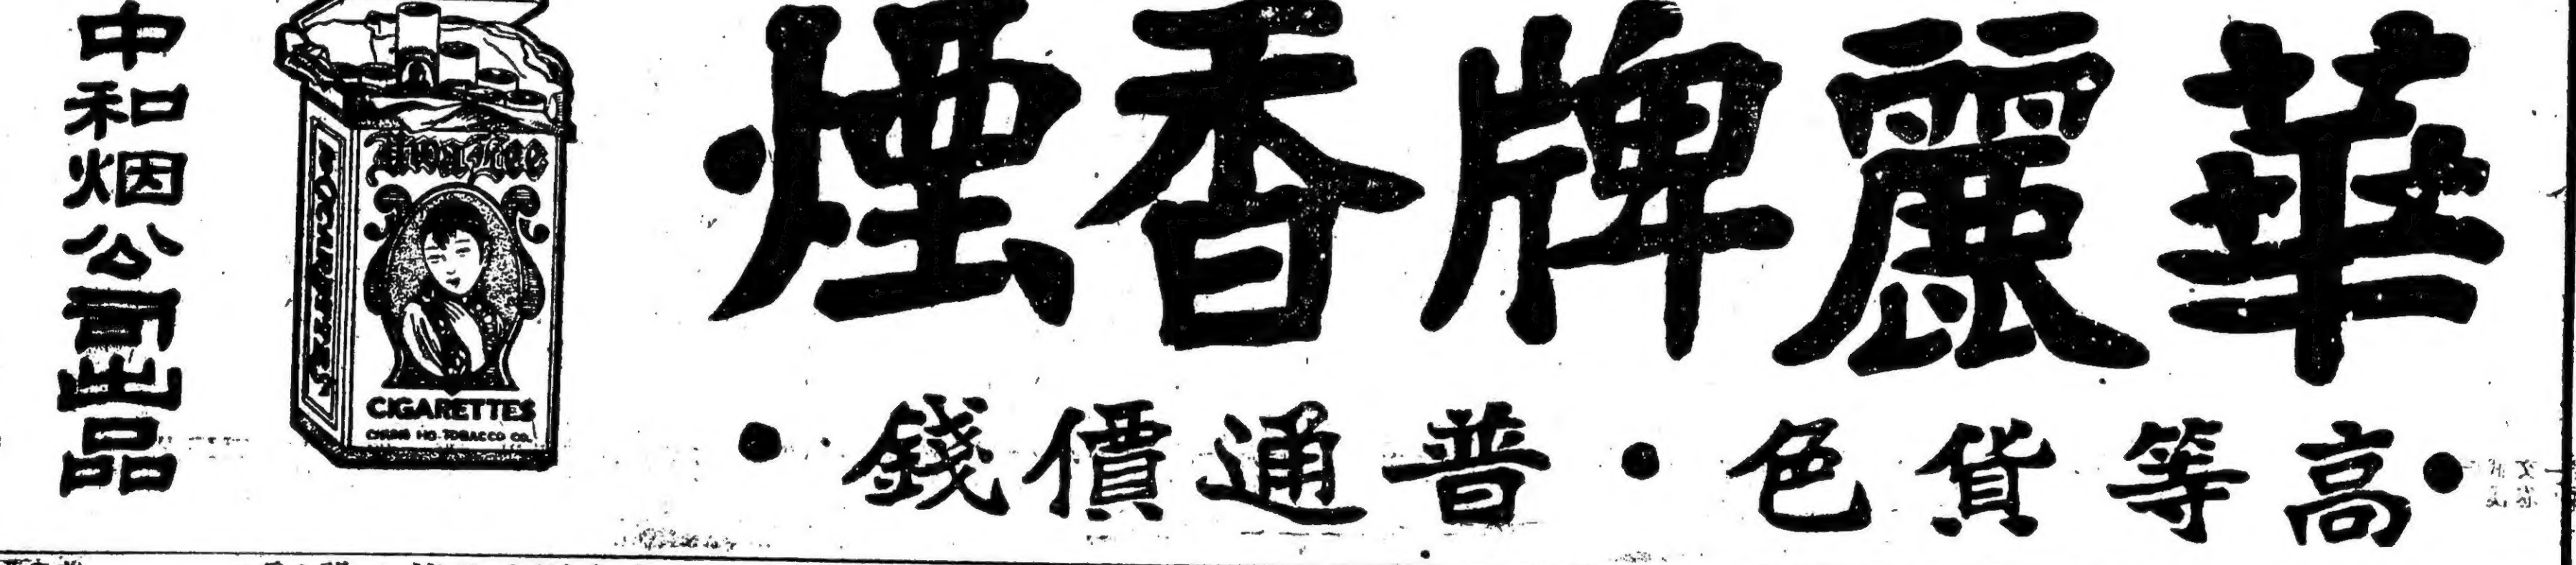 華麗牌香煙
•高等貨色•普通價錢•
Hwa Lee
CIGARETTES
CHUNG HO TOBACCO CO.
中和烟公司出品